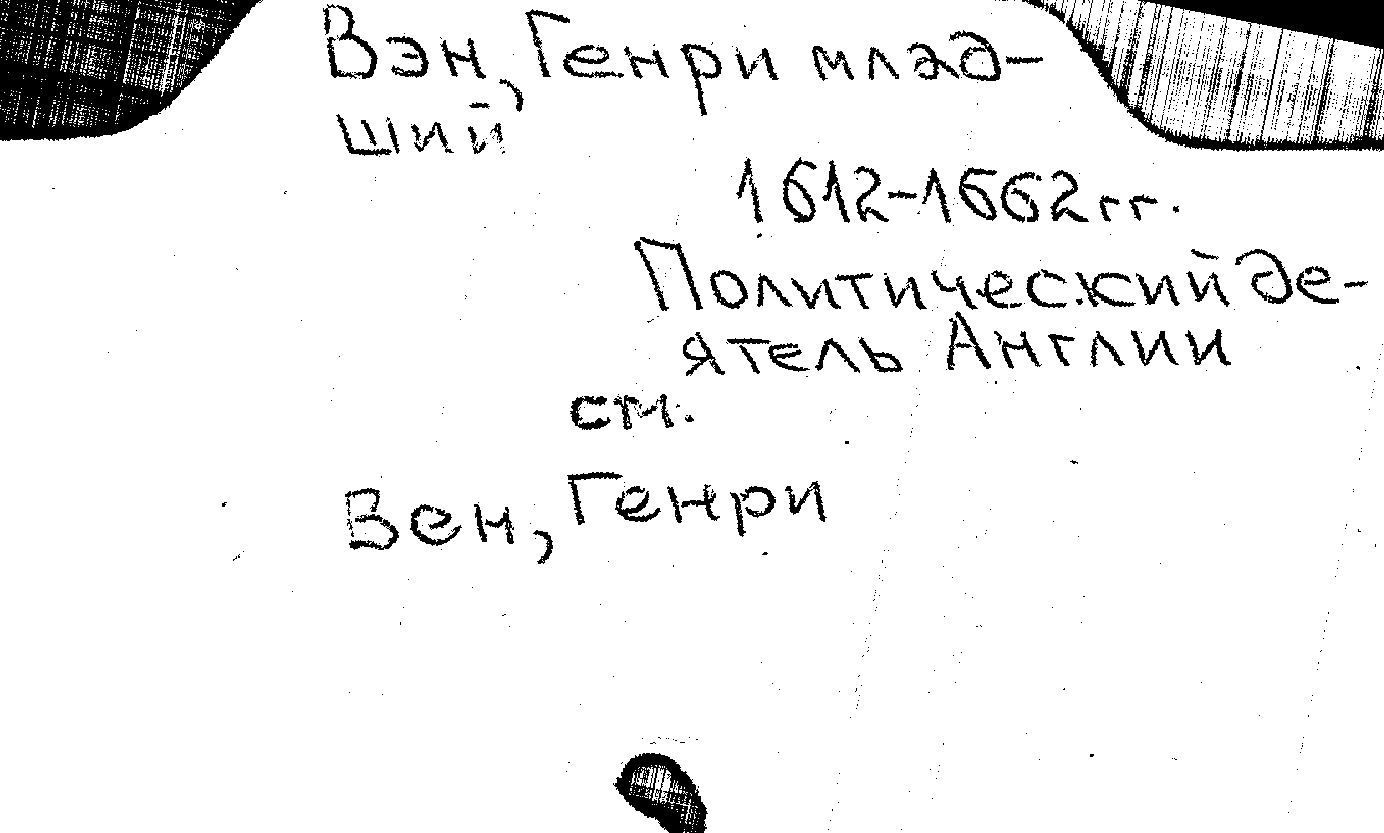 Вэн, Генри млад-
ший
1612-1662гг.
Политический де-
ятель Англии
см.
Вен, Генри